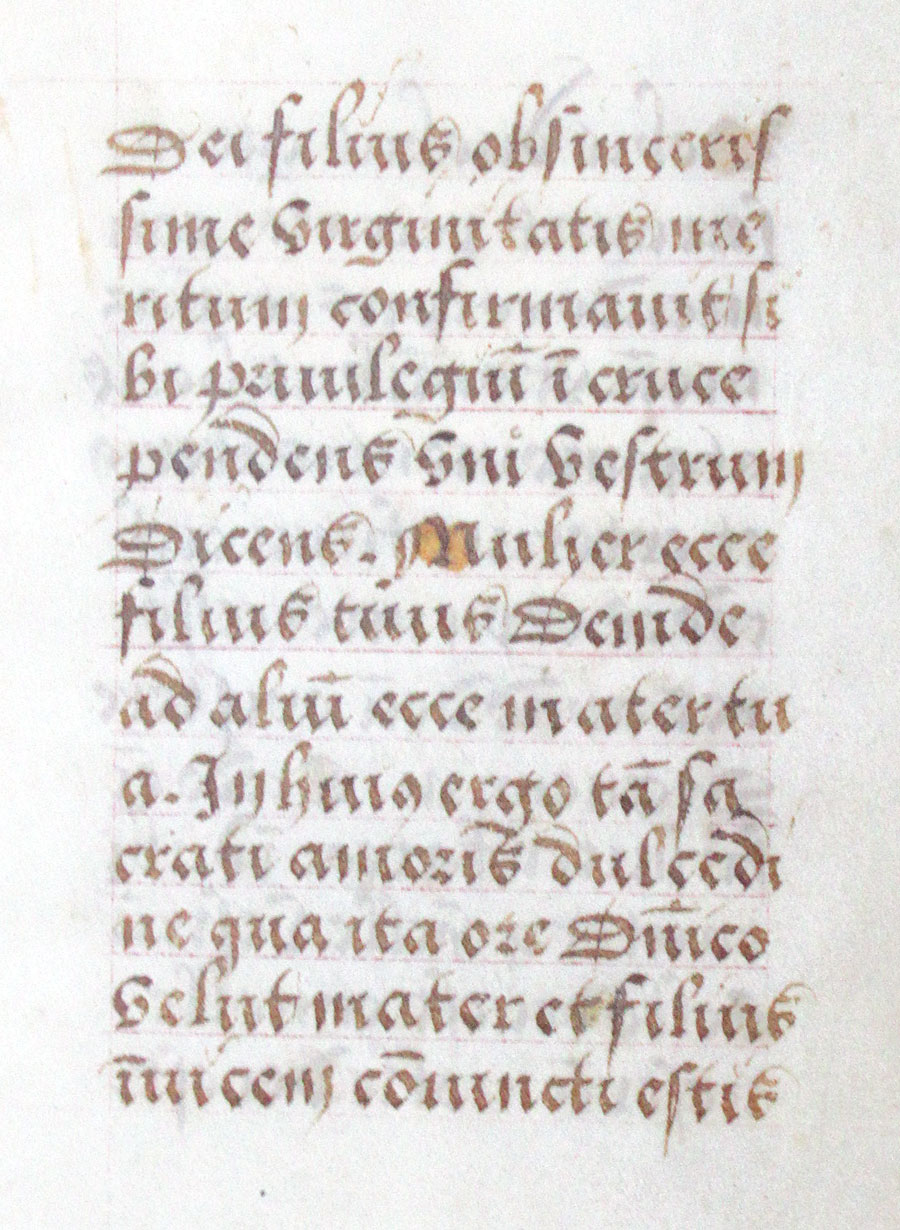 Dei filius ob sinceris
sime virginitatis me
ritum confirmavit si
bi privilegiū ī cruce
pendens vni vestrum
Dicens. Mulier ecce
filius tuus Deinde
ad aliū ecce mater tu
a. In huiꝯ ergo tā sa
crati amoris dulcedi
ne qua ita ore Dn̄ico
velut mater et filius
īuicem cōiuncti estis